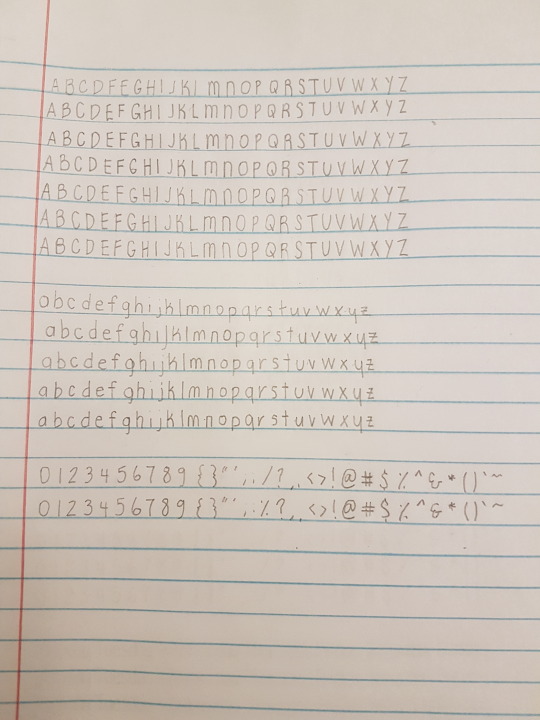 A B C D F E G H I J K L M N O P Q R S T U V W X Y Z
A B C D E F G H I J K L M N O P Q R S T U V W X Y Z
A B C D E F G H I J K L M N O P Q R S T U V W X Y Z
A B C D E F G H I J K L M N O P Q R S T U V W X Y Z
A B C D E F G H I J K L M N O P Q R S T U V W X Y Z
A B C D E F G H I J K L M N O P Q R S T U V W X Y Z
A B C D E F G H I J K L M N O P Q R S T U V W X Y Z
a b c d e f g h i j k l m n o p q r s t u v w x y z
a b c d e f g h i j k l m n o p q r s t u v w x y z
a b c d e f g h i j k l m n o p q r s t u v w x y z
a b c d e f g h i j k l m n o p q r s t u v w x y z
a b c d e f g h i j k l m n o p q r s t u v w x y z
0 1 2 3 4 5 6 7 8 9 { } " ' , . / ? , . < > ! @ # $ % ^ & * ( ) ` ~
0 1 2 3 4 5 6 7 8 9 { } " ' , . % ? , . < > ! @ # $ % ^ & * ( ) ` ~